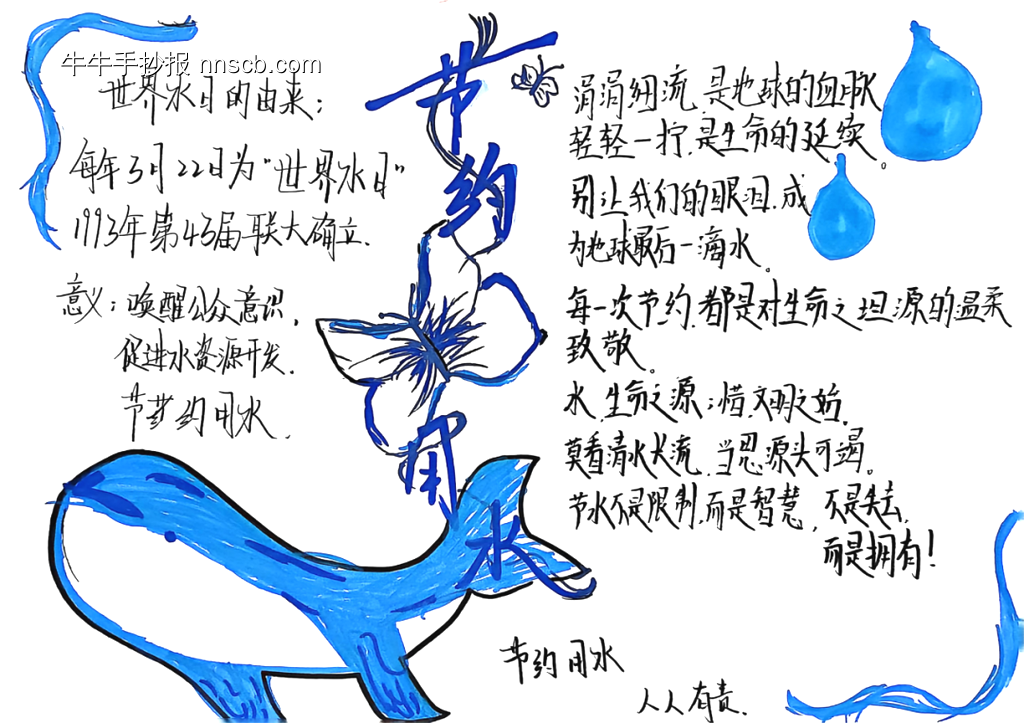 牛牛手抄报 nnscb.com
世界水日的由来:
每年3月22日为"世界水日"
1993年第43届联大确立.
意义:唤醒公众意识,
促进水资源开发.
节约用水.
节约用水
涓涓细流,是地球的血脉
轻轻一拧,是生命的延续。
别让我们的眼泪,成
为地球最后一滴水。
每一次节约,都是对生命之坦源的温柔
致敬。
水,生命之源;惜,文明之始.
莫看清水长流,当思源头可竭。
节水不是限制,而是智慧,不是失去,
而是拥有!
节约用水
人人有责.